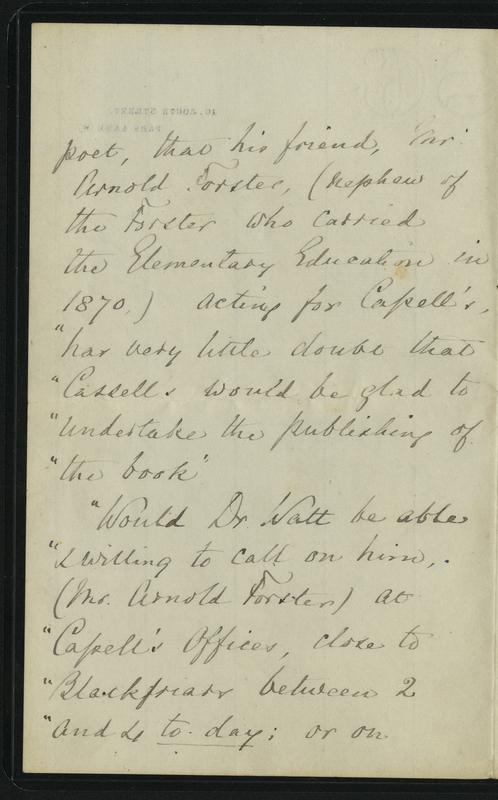 10, SOUTH STREET,
PARK LANE. W.
poet, that his friend, Mr.
Arnold Forster, (nephew of
the Forster who carried
the Elementary Education in
1870,) acting for Cassell's,
"has very little doubt that
"Cassells would be glad to
"undertake the publishing of
"the book"
"Would Dr. Watt be able
"& willing to call on him,.
(Mr. Arnold Forster) at
"Cassell's Offices, close to
"Blackfriars between 2
"and 4 to-day; or on